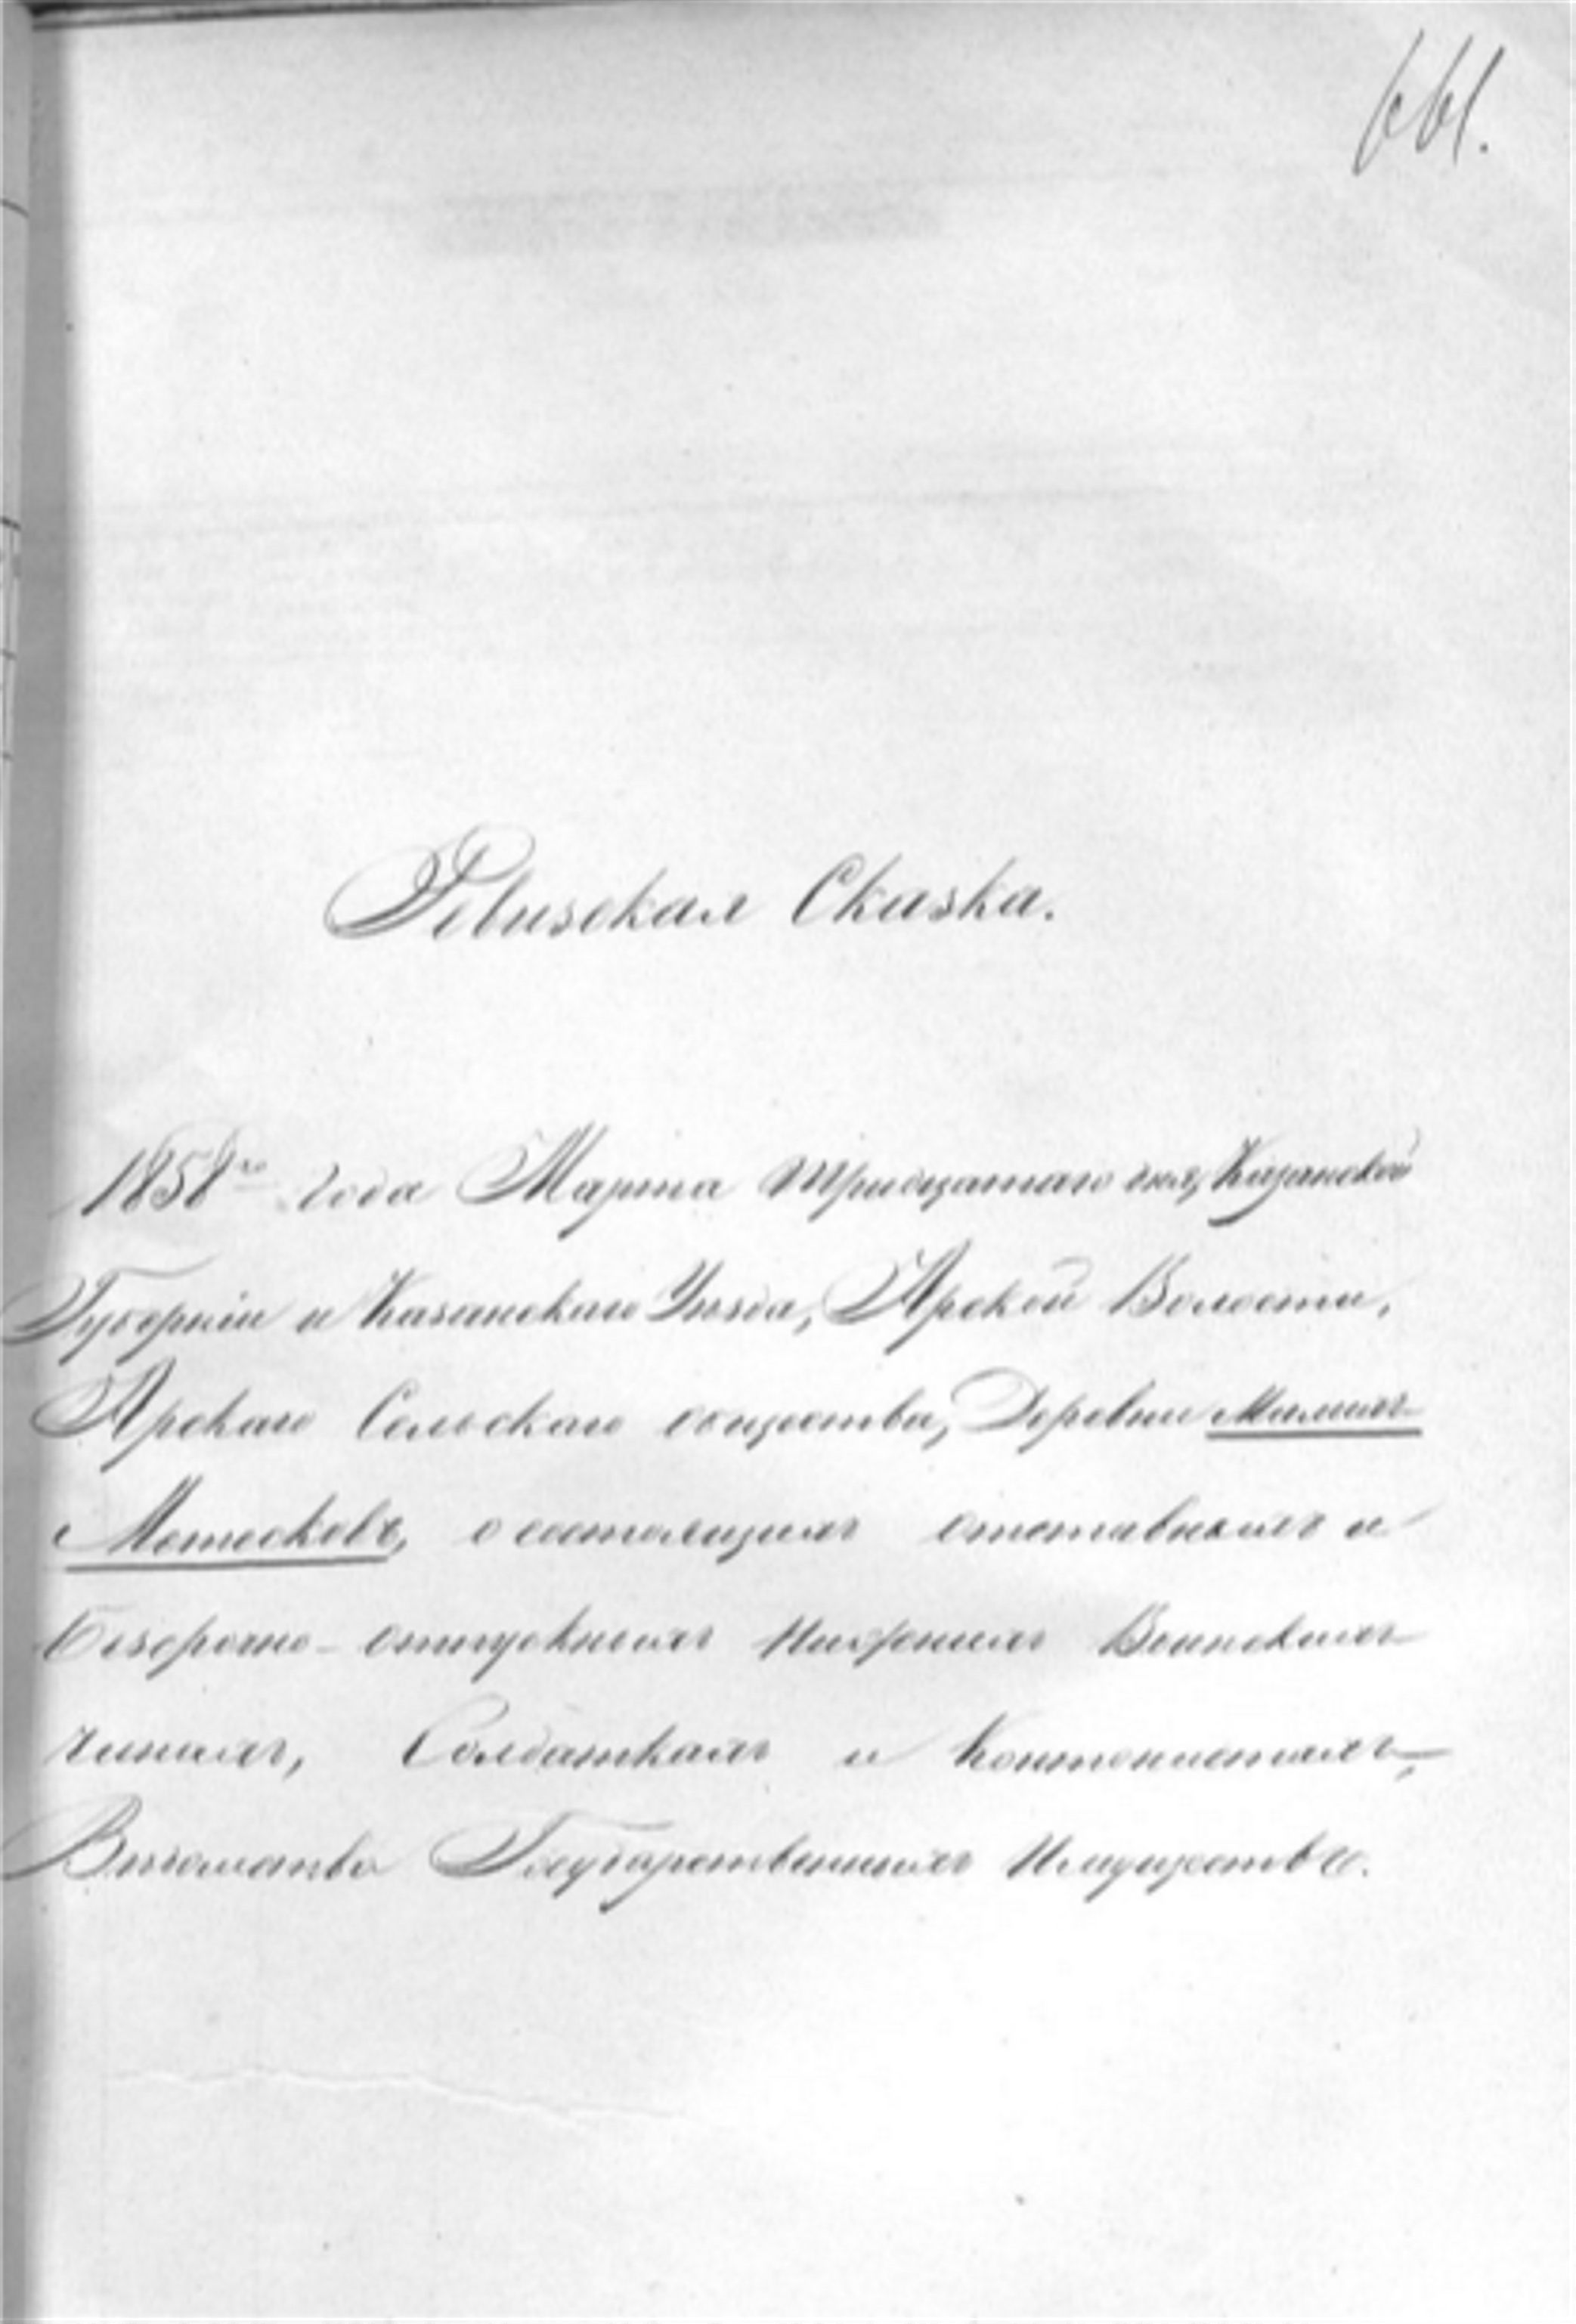 661.
Ревизская Сказка.
1858го Года Марта тридцатаго дня, Казанской
Губерніи и Казанскаго Уѣзда, Арской Волости,
Арскаго Сельскаго общества, Деревни Малыхъ
Метесковъ, о состоящихъ отставныхъ и
безсрочно-отпускныхъ Нижнихъ Воинскихъ
чинахъ, Солдаткахъ и Кантонистахъ,
Вѣдомства Государственныхъ Имуществъ.